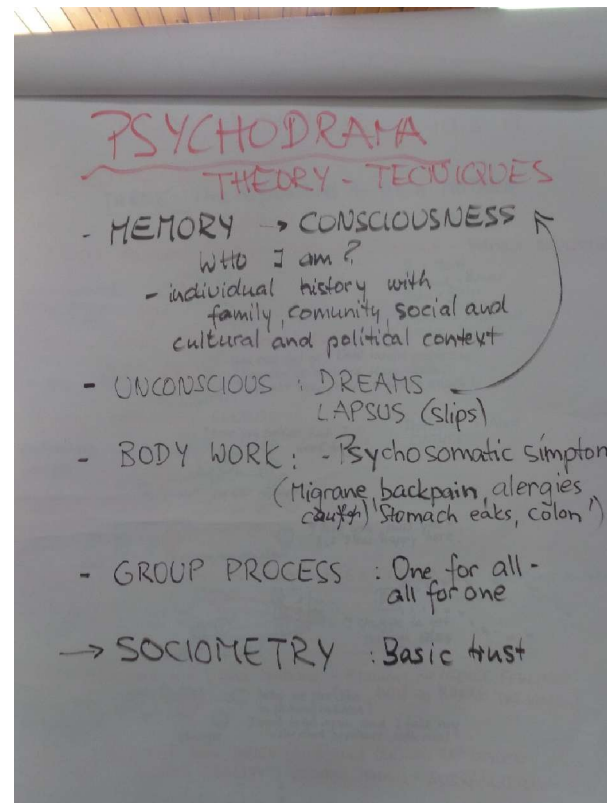 PSYCHODRAMA
THEORY - TECNICQUES
- MEMORY → CONSCIOUSNESS
WHO I am?
- individual history with
family, comunity, social and
cultural and political context
- UNCONSCIOUS : DREAMS
LAPSUS (slips)
- BODY WORK : - Psychosomatic simpton
(Migrane, backpain, alergies
'Stomach eaks, colon')
- GROUP PROCESS : One for all -
all for one
→ SOCIOMETRY : Basic trust